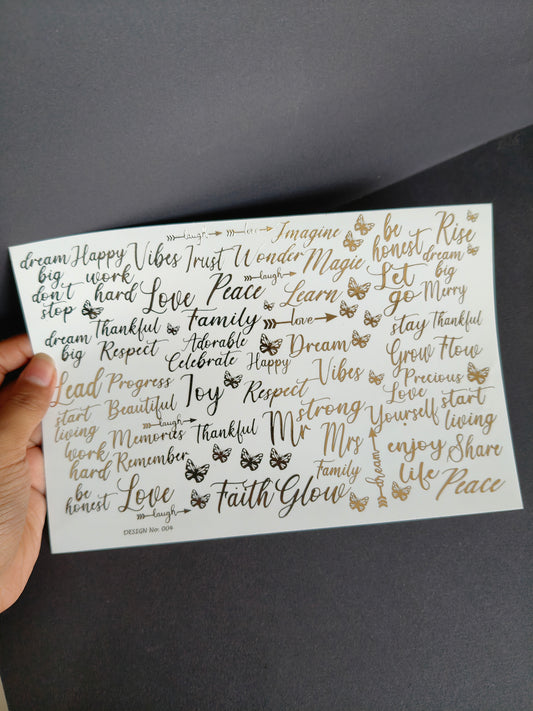 laugh love Imagine be honest Rise
dream big don't stop Happy Vibes Trust Wonder Magic dream big
work hard Love Peace laugh Learn Let go Merry
dream big Thankful Family love stay Thankful
Respect Adorable Dream Grow Flow
Celebrate Happy Vibes Precious
Lead Progress Joy Respect Love Yourself start living
start living Beautiful laugh strong
work hard Memories Thankful Mr Mrs dream enjoy life Share
Remember Family
be honest Love laugh Faith Glow Peace
DESIGN No. 004